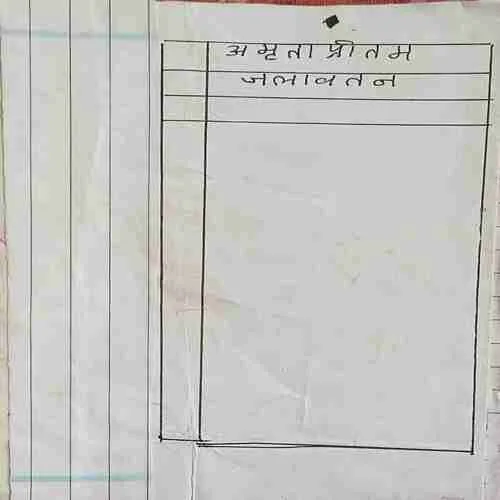 अमृता प्रीतम
जलावतन